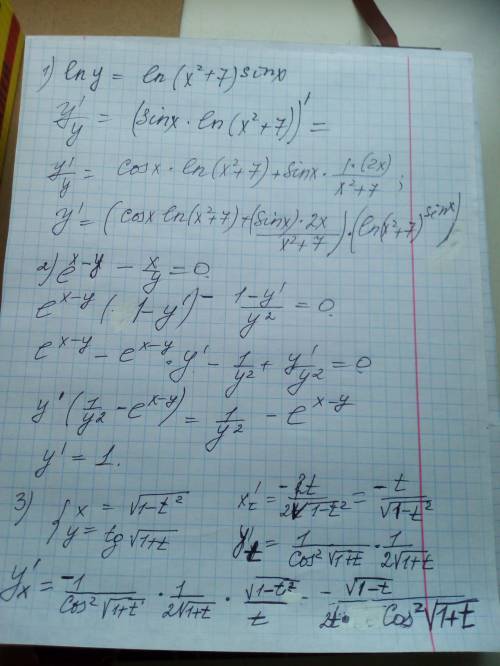 1) ln y = ln(x²+7)^sinx
y'/y = (sinx · ln(x²+7))' =
y'/y = cosx · ln(x²+7) + sinx · 1·(2x)/(x²+7);
y' = (cosx ln(x²+7) + (sinx)·2x/(x²+7)) · (ln(x²+7)^sinx)
2) e^(x-y) - x/y = 0.
e^(x-y) (1-y') - (1-y')/y² = 0.
e^(x-y) - e^(x-y) · y' - 1/y² + y'/y² = 0
y' (1/y² - e^(x-y)) = 1/y² - e^(x-y)
y' = 1.
3) { x = √(1-t²) x't = -2t/(2√(1-t²)) = -t/√(1-t²)
y = tg √(1+t) y't = 1/(cos²√(1+t)) · 1/(2√(1+t))
y'x = -1/(cos²√(1+t)) · 1/(2√(1+t)) · √(1-t²)/t = -√(1-t)/(2t · cos²√(1+t))